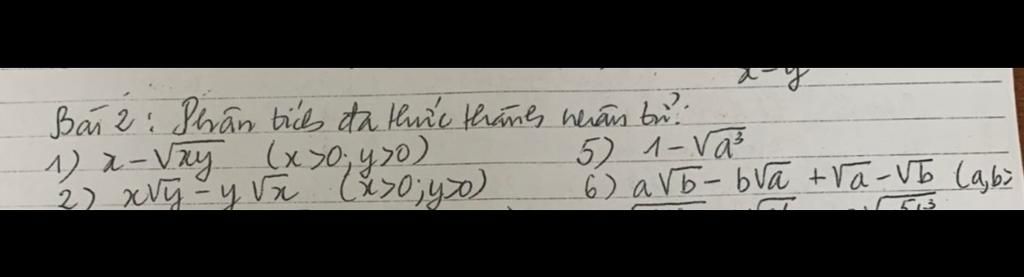 x-y
Bài 2: Phân tích đa thức thành nhân tử:
1) x - √xy (x>0; y>0)
5) 1 - √a³
2) x√y - y√x (x>0; y>0)
6) a√b - b√a + √a - √b (a,b>